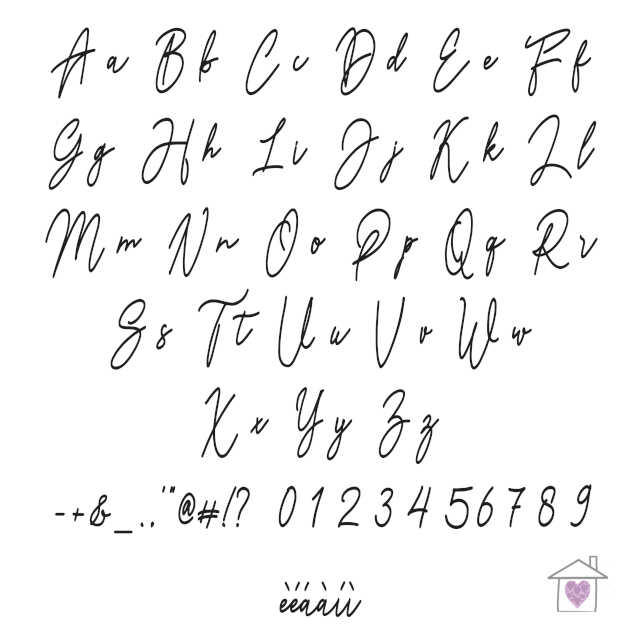 A a B b C c D d E e F f
G g H h I i J j K k L l
M m N n O o P p Q q R r
S s T t U u V v W w
X x Y y Z z
- + & _ , . ' " @ # ! ? 0 1 2 3 4 5 6 7 8 9